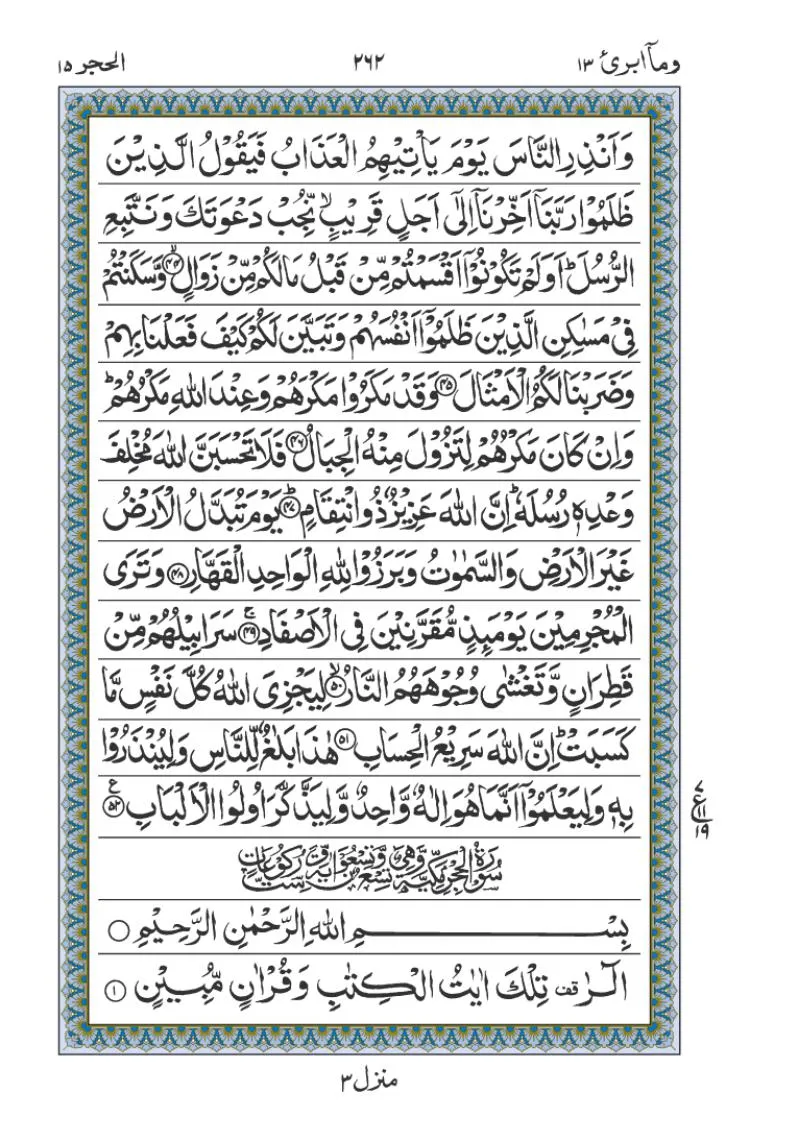 وماۤ ابرئ ١٣ ٢٦٢ الحجر ١٥
وَاَنْذِرِ النَّاسَ يَوْمَ يَاْتِيْهِمُ الْعَذَابُ فَيَقُوْلُ الَّذِيْنَ
ظَلَمُوْا رَبَّنَاۤ اَخِّرْنَاۤ اِلٰۤى اَجَلٍ قَرِيْبٍۙ نُّجِبْ دَعْوَتَكَ وَنَتَّبِعِ
الرُّسُلَؕ اَوَلَمْ تَكُوْنُوْۤا اَقْسَمْتُمْ مِّنْ قَبْلُ مَا لَكُمْ مِّنْ زَوَالٍۙ ﴿۴۴﴾ وَّسَكَنْتُمْ
فِيْ مَسٰكِنِ الَّذِيْنَ ظَلَمُوْۤا اَنْفُسَهُمْ وَتَبَيَّنَ لَكُمْ كَيْفَ فَعَلْنَا بِهِمْ
وَضَرَبْنَا لَكُمُ الْاَمْثَالَ ﴿۴۵﴾ وَقَدْ مَكَرُوْا مَكْرَهُمْ وَعِنْدَ اللهِ مَكْرُهُمْؕ
وَاِنْ كَانَ مَكْرُهُمْ لِتَزُوْلَ مِنْهُ الْجِبَالُ ﴿۴۶﴾ فَلَا تَحْسَبَنَّ اللهَ مُخْلِفَ
وَعْدِهٖ رُسُلَهٗؕ اِنَّ اللهَ عَزِيْزٌ ذُو انْتِقَامٍؕ ﴿۴۷﴾ يَوْمَ تُبَدَّلُ الْاَرْضُ
غَيْرَ الْاَرْضِ وَالسَّمٰوٰتُ وَبَرَزُوْا لِلّٰهِ الْوَاحِدِ الْقَهَّارِ ﴿۴۸﴾ وَتَرَى
الْمُجْرِمِيْنَ يَوْمَىِٕذٍ مُّقَرَّنِيْنَ فِي الْاَصْفَادِۚ ﴿۴۹﴾ سَرَابِيْلُهُمْ مِّنْ
قَطِرَانٍ وَّتَغْشٰى وُجُوْهَهُمُ النَّارُۙ ﴿۵۰﴾ لِيَجْزِيَ اللهُ كُلَّ نَفْسٍ مَّا
كَسَبَتْؕ اِنَّ اللهَ سَرِيْعُ الْحِسَابِ ﴿۵۱﴾ هٰذَا بَلٰغٌ لِّلنَّاسِ وَلِيُنْذَرُوْا
بِهٖ وَلِيَعْلَمُوْۤا اَنَّمَا هُوَ اِلٰهٌ وَّاحِدٌ وَّلِيَذَّكَّرَ اُولُوا الْاَلْبَابِ ﴿۵۲﴾ ع
٧
ع ١١
١٩
سُوْرَةُ الْحِجْرِ مَكِّيَّةٌ وَّهِيَ تِسْعٌ وَّتِسْعُوْنَ اٰيَةً وَّسِتُّ رُكُوْعَاتٍ
بِسْمِ اللهِ الرَّحْمٰنِ الرَّحِيْمِ
الٓرٰ قف تِلْكَ اٰيٰتُ الْكِتٰبِ وَقُرْاٰنٍ مُّبِيْنٍ ﴿۱﴾
منزل ٣